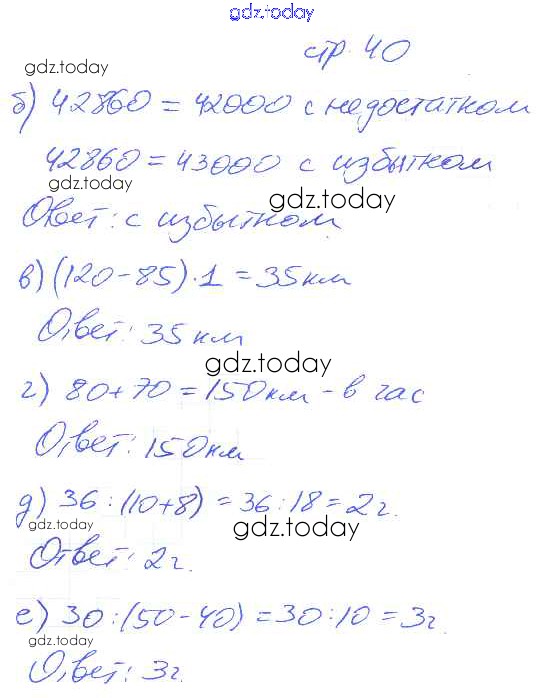 gdz.today
стр. 40
gdz.today
б) 42860 = 42000 с недостатком
42860 = 43000 с избытком
gdz.today
gdz.today
Ответ: с избытком
в) (120 - 85) · 1 = 35 км
Ответ: 35 км
gdz.today
г) 80 + 70 = 150 км - в час
Ответ: 150 км
д) 36 : (10 + 8) = 36 : 18 = 2 г.
gdz.today
gdz.today
Ответ: 2 г.
е) 30 : (50 - 40) = 30 : 10 = 3 г.
gdz.today
Ответ: 3 г.